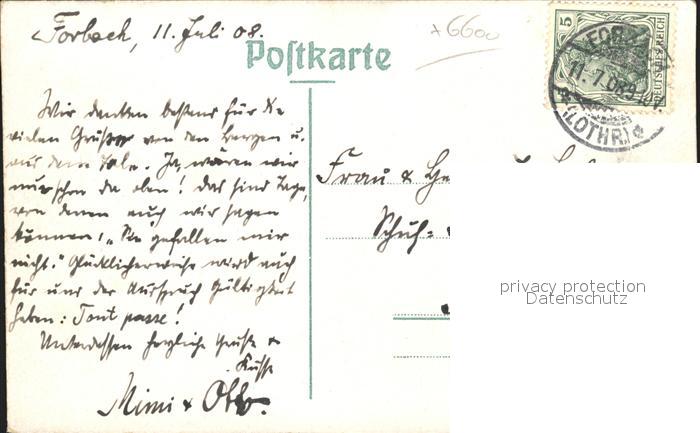 Forbach, 11. Juli 08.
+6600
Postkarte
5
DEUTSCHES REICH
FORBACH
11.7.08 9-10V.
(LOTHR)
Wir danken bestens für die
vielen Grüsse von den Bergen u.
aus dem Tale. Ja, wären wir
nur schon da oben! Das sind Tage,
von denen auch wir sagen
können: „Sie gefallen mir
nicht." Glücklicherweise wird auch
für uns der Ausspruch Gültigkeit
haben: Tout passe!
Unterdessen herzliche Grüße &
Küsse
Mimi & Otto.
Frau &
Schuh-
privacy protection
Datenschutz